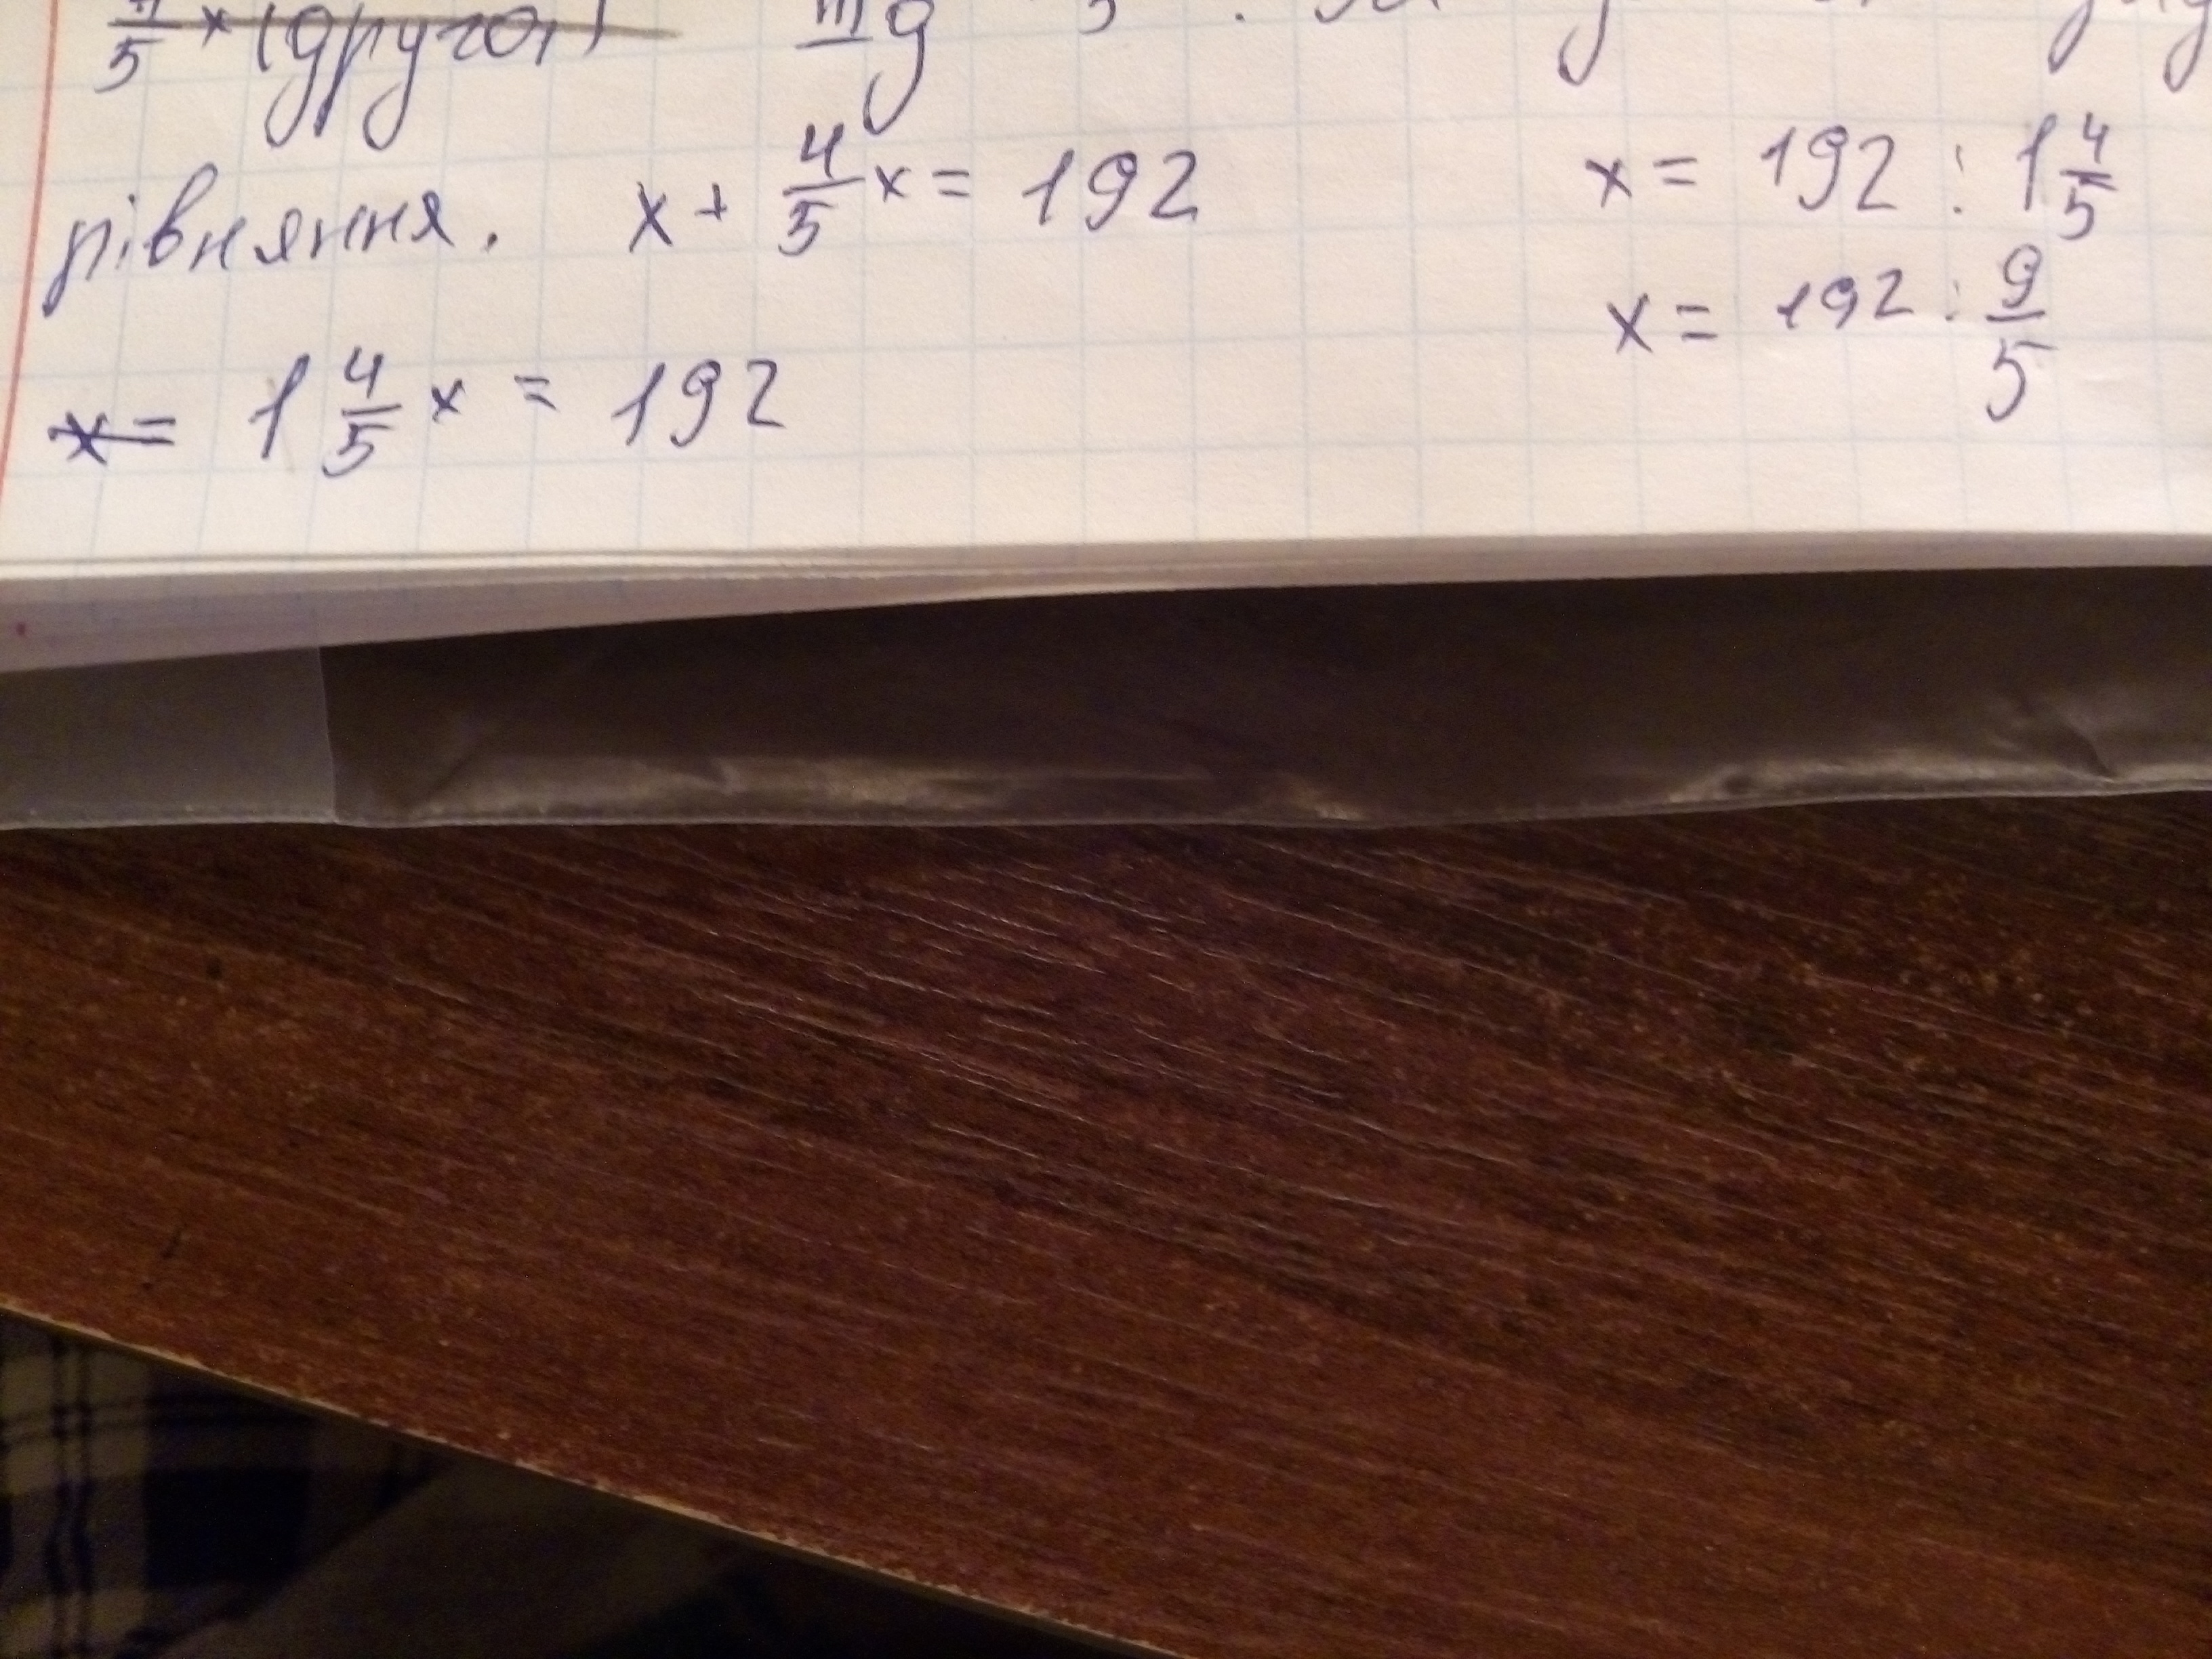 5 x (друга)
рівняння. x + 4/5 x = 192
x = 1 4/5 x = 192
x = 192 : 1 4/5
x = 192 : 9/5